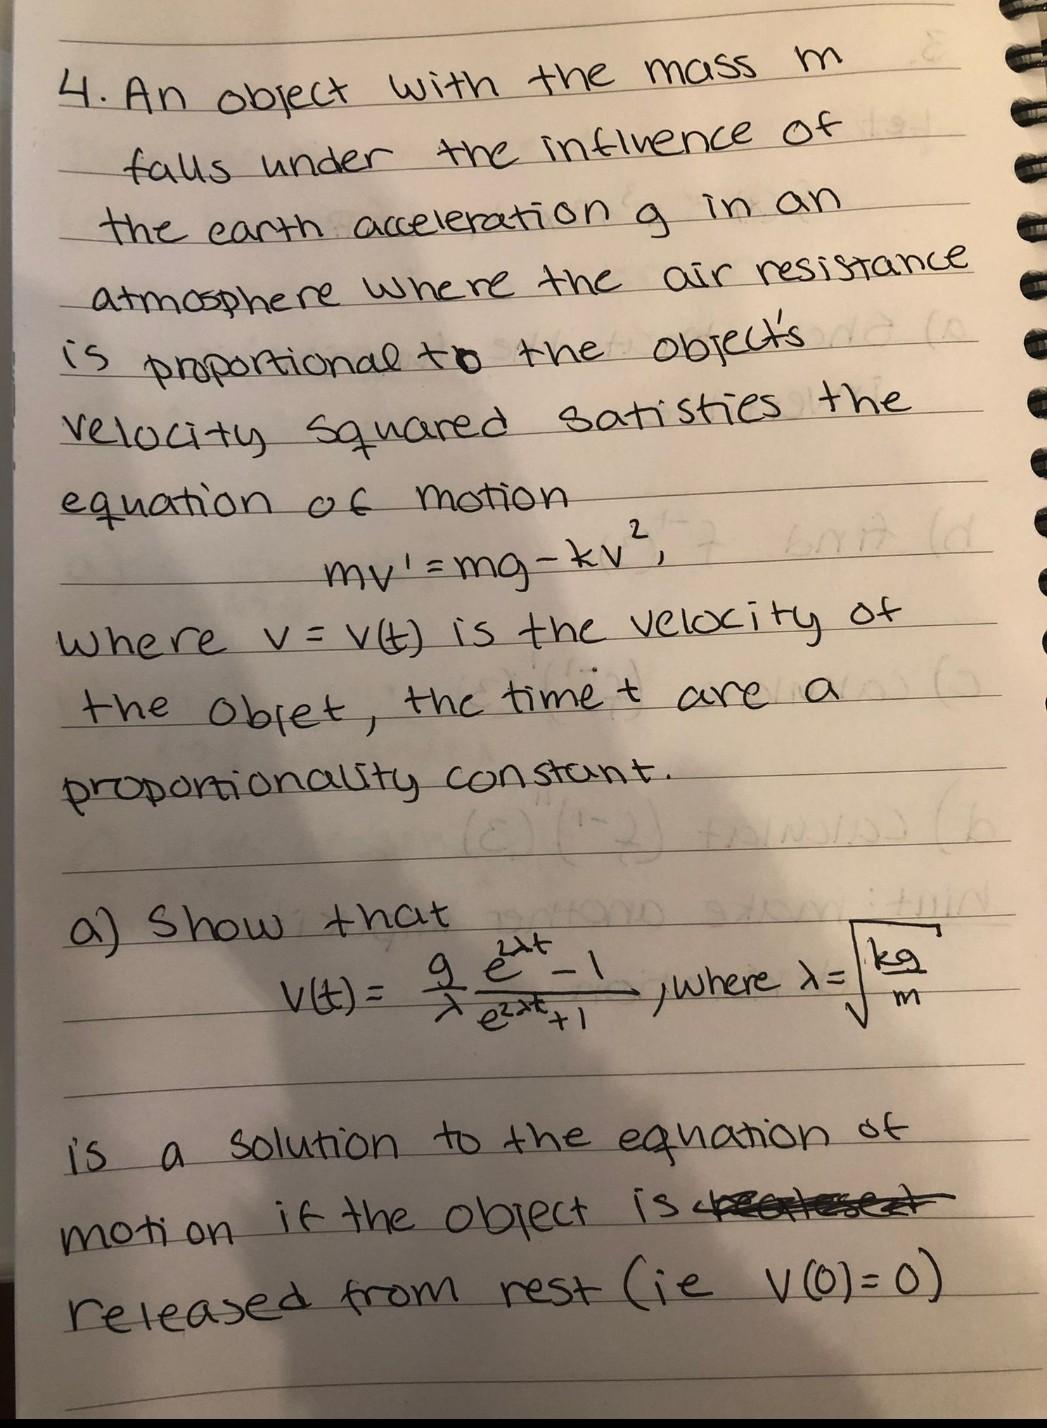 4. An object with the mass m
falls under the influence of
the earth acceleration g in an
atmosphere where the air resistance
is proportional to the object's
velocity squared satisties the
equation of motion
mv' = mg - kv²,
where v = v(t) is the velocity of
the objet, the time t are a
proportionality constant.
a) Show that
v(t) = g/λ (e^2λt - 1)/(e^2λt + 1), where λ = √(kg/m)
is a solution to the equation of
motion if the object is
released from rest (ie v(0)=0)